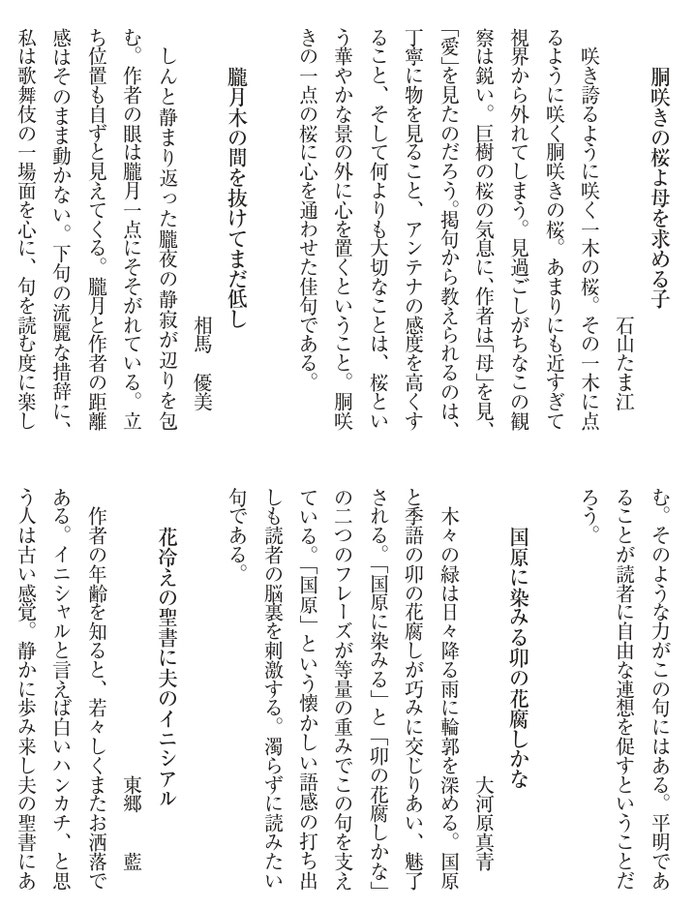 胴咲きの桜よ母を求める子
石山たま江
咲き誇るように咲く一木の桜。その一木に点
るように咲く胴咲きの桜。あまりにも近すぎて
視界から外れてしまう。見過ごしがちなこの観
察は鋭い。巨樹の桜の気息に、作者は「母」を見、
「愛」を見たのだろう。掲句から教えられるのは、
丁寧に物を見ること、アンテナの感度を高くす
ること、そして何よりも大切なことは、桜とい
う華やかな景の外に心を置くということ。胴咲
きの一点の桜に心を通わせた佳句である。
朧月木の間を抜けてまだ低し
相馬 優美
しんと静まり返った朧夜の静寂が辺りを包
む。作者の眼は朧月一点にそそがれている。立
ち位置も自ずと見えてくる。朧月と作者の距離
感はそのまま動かない。下句の流麗な措辞に、
私は歌舞伎の一場面を心に、句を読む度に楽し
む。そのような力がこの句にはある。平明であ
ることが読者に自由な連想を促すということだ
ろう。
国原に染みる卯の花腐しかな
大河原真青
木々の緑は日々降る雨に輪郭を深める。国原
と季語の卯の花腐しが巧みに交じりあい、魅了
される。「国原に染みる」と「卯の花腐しかな」
の二つのフレーズが等量の重みでこの句を支え
ている。「国原」という懐かしい語感の打ち出
しも読者の脳裏を刺激する。濁らずに読みたい
句である。
花冷えの聖書に夫のイニシアル
東郷 藍
作者の年齢を知ると、若々しくまたお洒落で
ある。イニシャルと言えば白いハンカチ、と思
う人は古い感覚。静かに歩み来し夫の聖書にあ